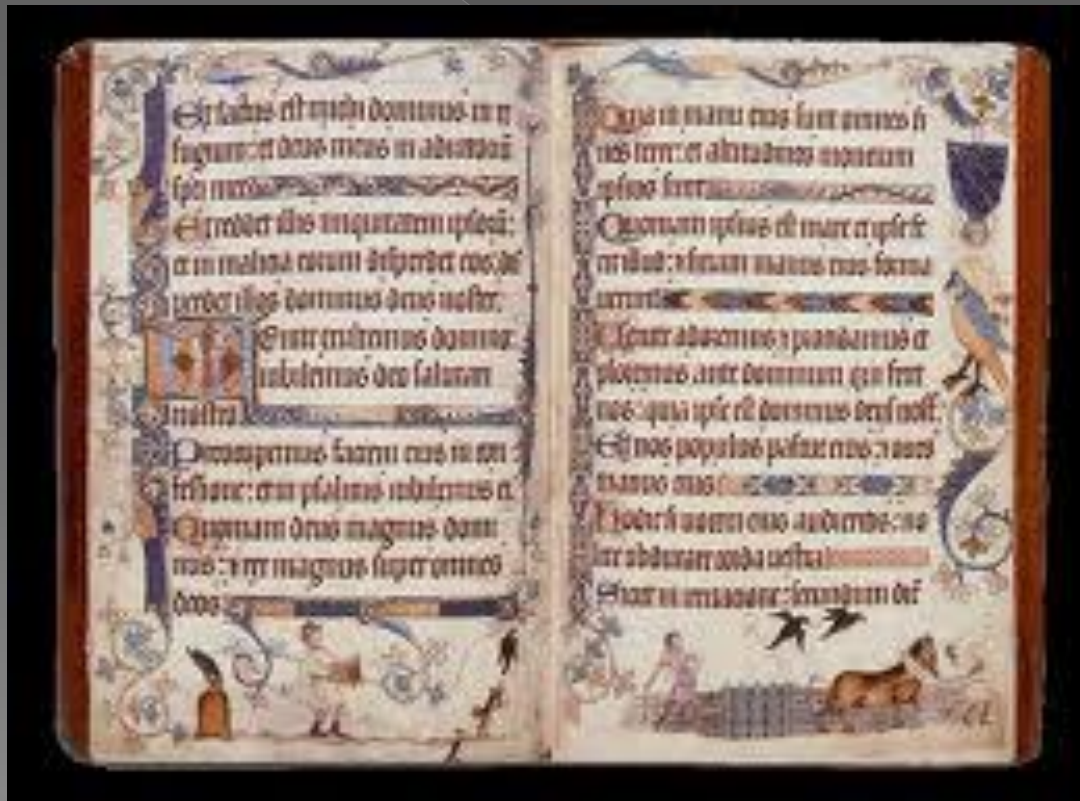 Et factus est michi dominus in re
fugium: et deus meus in adiutoriū
spei mee
Et reddet illis iniquitatem ipsorū:
et in malicia eorum disperdet eos: dis
perdet illos dominus deus noster.
Venite exultemus domino
iubilemus deo salutari
nostro
Preoccupemus faciem eius in con
fessione: et in psalmis iubilemus ei.
Quoniam deus magnus domi
nus: ⁊ rex magnus super omnes
deos
Quia in manu eius sunt omnes fi
nes terre: et altitudines moncium
ipsius sunt
Quoniam ipsius est mare et ipse fe
cit illud: ⁊ siccam manus eius forma
uerunt
Venite adoremus ⁊ procidamus et
ploremus ante dominum qui fecit
nos: quia ipse est dominus deus
Et nos populus pascue eius: ⁊ oues
manus eius
Hodie si uocem eius audieritis: no
lite obdurare corda uestra
Sicut in secundum